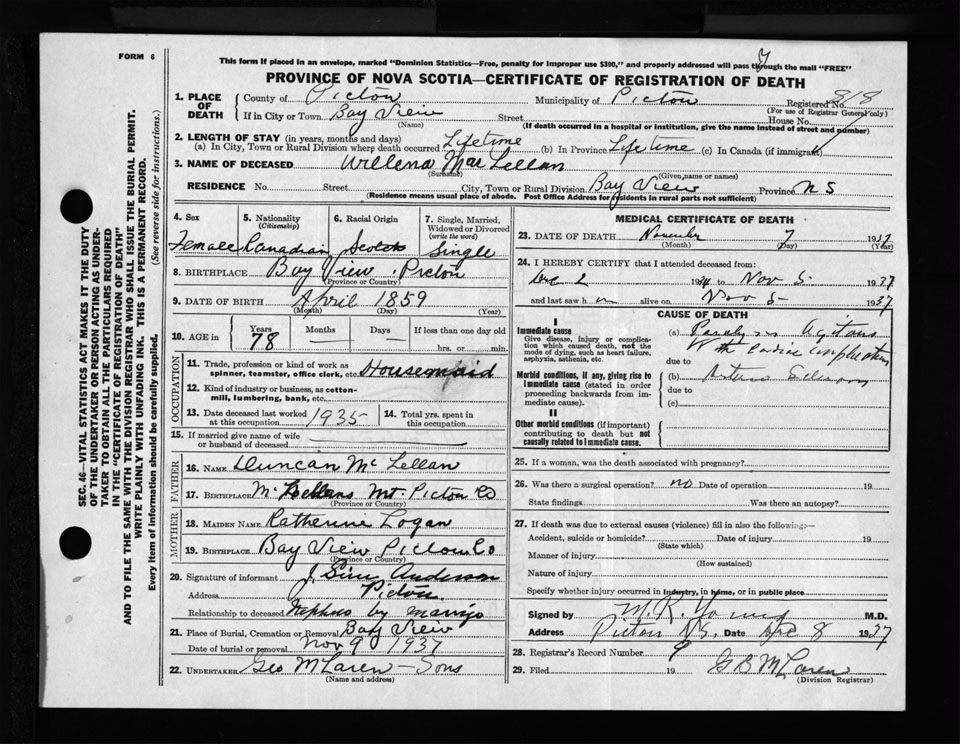 FORM 6
This form if placed in an envelope, marked "Dominion Statistics—Free, penalty for improper use $300," and properly addressed will pass through the mail "FREE"
PROVINCE OF NOVA SCOTIA—CERTIFICATE OF REGISTRATION OF DEATH
1. PLACE OF DEATH
County of Pictou Municipality of Pictou Registered No. 818
(For use of Registrar General only)
If in City or Town Bay View Street House No.
(Name) (If death occurred in a hospital or institution, give the name instead of street and number)
2. LENGTH OF STAY (in years, months and days)
(a) In City, Town or Rural Division where death occurred Lifetime (b) In Province Lifetime (c) In Canada (if immigrant)
3. NAME OF DECEASED Willena MacLellan
(Surname) (Given name or names)
RESIDENCE No. Street City, Town or Rural Division Bay View Province N S
(Residence means usual place of abode. Post Office Address for residents in rural parts not sufficient)
4. Sex
Female
5. Nationality
(Citizenship)
Canadian
6. Racial Origin
Scotch
7. Single, Married, Widowed or Divorced
(write the word)
Single
8. BIRTHPLACE Bay View, Pictou
(Province or Country)
9. DATE OF BIRTH April 1859
(Month) (Day) (Year)
10. AGE in Years Months Days If less than one day old
78 — — hrs. or min.
OCCUPATION
11. Trade, profession or kind of work as spinner, teamster, office clerk, etc. Housemaid
12. Kind of industry or business, as cotton-mill, lumbering, bank, etc.
13. Date deceased last worked at this occupation 1935
14. Total yrs. spent in this occupation
15. If married give name of wife or husband of deceased
FATHER
16. NAME Duncan McLellan
17. BIRTHPLACE McLellans Mt. Pictou Co
(Province or Country)
MOTHER
18. MAIDEN NAME Katherine Logan
19. BIRTHPLACE Bay View Pictou Co
(Province or Country)
20. Signature of informant J. Anderson
Address Pictou
Relationship to deceased Nephew by marriage
21. Place of Burial, Cremation or Removal Bay View
Date of burial or removal Nov 9 1937
22. UNDERTAKER Geo McLaren — Sons
(Name and address)
MEDICAL CERTIFICATE OF DEATH
23. DATE OF DEATH November 7 1937
(Month) (Day) (Year)
24. I HEREBY CERTIFY that I attended deceased from:
Dec 2 1934 to Nov 5 1937
and last saw h alive on Nov 5 1937
CAUSE OF DEATH
I
Immediate cause
Give disease, injury or complication which caused death, not the mode of dying, such as heart failure, asphyxia, asthenia, etc.
(a) Paralysis Agitans
With cardiac complications
due to
Morbid conditions, if any, giving rise to immediate cause (stated in order proceeding backwards from immediate cause).
(b) Arterio Sclerosis
due to
(c)
II
Other morbid conditions (if important) contributing to death but not causally related to immediate cause.
25. If a woman, was the death associated with pregnancy?
26. Was there a surgical operation? no Date of operation 19
State findings Was there an autopsy?
27. If death was due to external causes (violence) fill in also the following:—
Accident, suicide or homicide? Date of injury 19
(State which)
Manner of injury
(How sustained)
Nature of injury
Specify whether injury occurred in Industry, in home, or in public place
Signed by M. R. Young M.D.
Address Pictou N.S. Date Dec 8 1937
28. Registrar's Record Number 9
29. Filed 19 G B McLaren
(Division Registrar)
SEC. 46—VITAL STATISTICS ACT MAKES IT THE DUTY
OF THE UNDERTAKER OR PERSON ACTING AS UNDER-
TAKER TO OBTAIN ALL THE PARTICULARS REQUIRED
IN THE "CERTIFICATE OF REGISTRATION OF DEATH"
AND TO FILE THE SAME WITH THE DIVISION REGISTRAR WHO SHALL ISSUE THE BURIAL PERMIT.
WRITE PLAINLY WITH UNFADING INK. THIS IS A PERMANENT RECORD.
Every item of information should be carefully supplied. (See reverse side for instructions.)